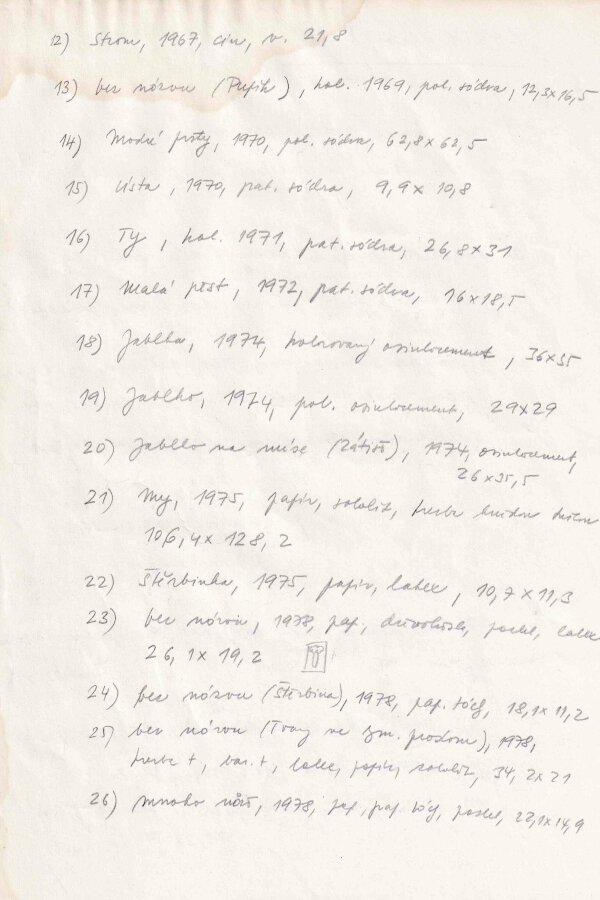 12) Strom, 1967, cín, v. 21,8
13) bez názvu (Pupík), kol. 1969, pol. sádra, 12,3x16,5
14) Modré prsty, 1970, pol. sádra, 62,8x62,5
15) Ústa, 1970, pat. sádra, 9,9x10,8
16) Ty, kol. 1971, pat. sádra, 26,8x31
17) Malá pěst, 1972, pat. sádra, 16x18,5
18) Jablka, 1974, kolorovaný osinkocement, 36x35
19) Jablko, 1974, pol. osinkocement, 29x29
20) Jablko na míse (Zátiší), 1974, osinkocement,
26x35,5
21) My, 1975, papír, sololit,
106,4x128,2
22) Štěrbinka, 1975, papír, latex, 10,7x11,3
23) bez názvu, 1978, pap, pastel, latex
26,1x19,2
24) bez názvu (Štěrbina), 1978, pap. 18,1x11,2
25) bez názvu (Tvary ve prostoru), 1978,
bar. t, latex, papír, sololit, 34,2x21
26) Mnoho 1978, pap. pastel, 22,1x14,9